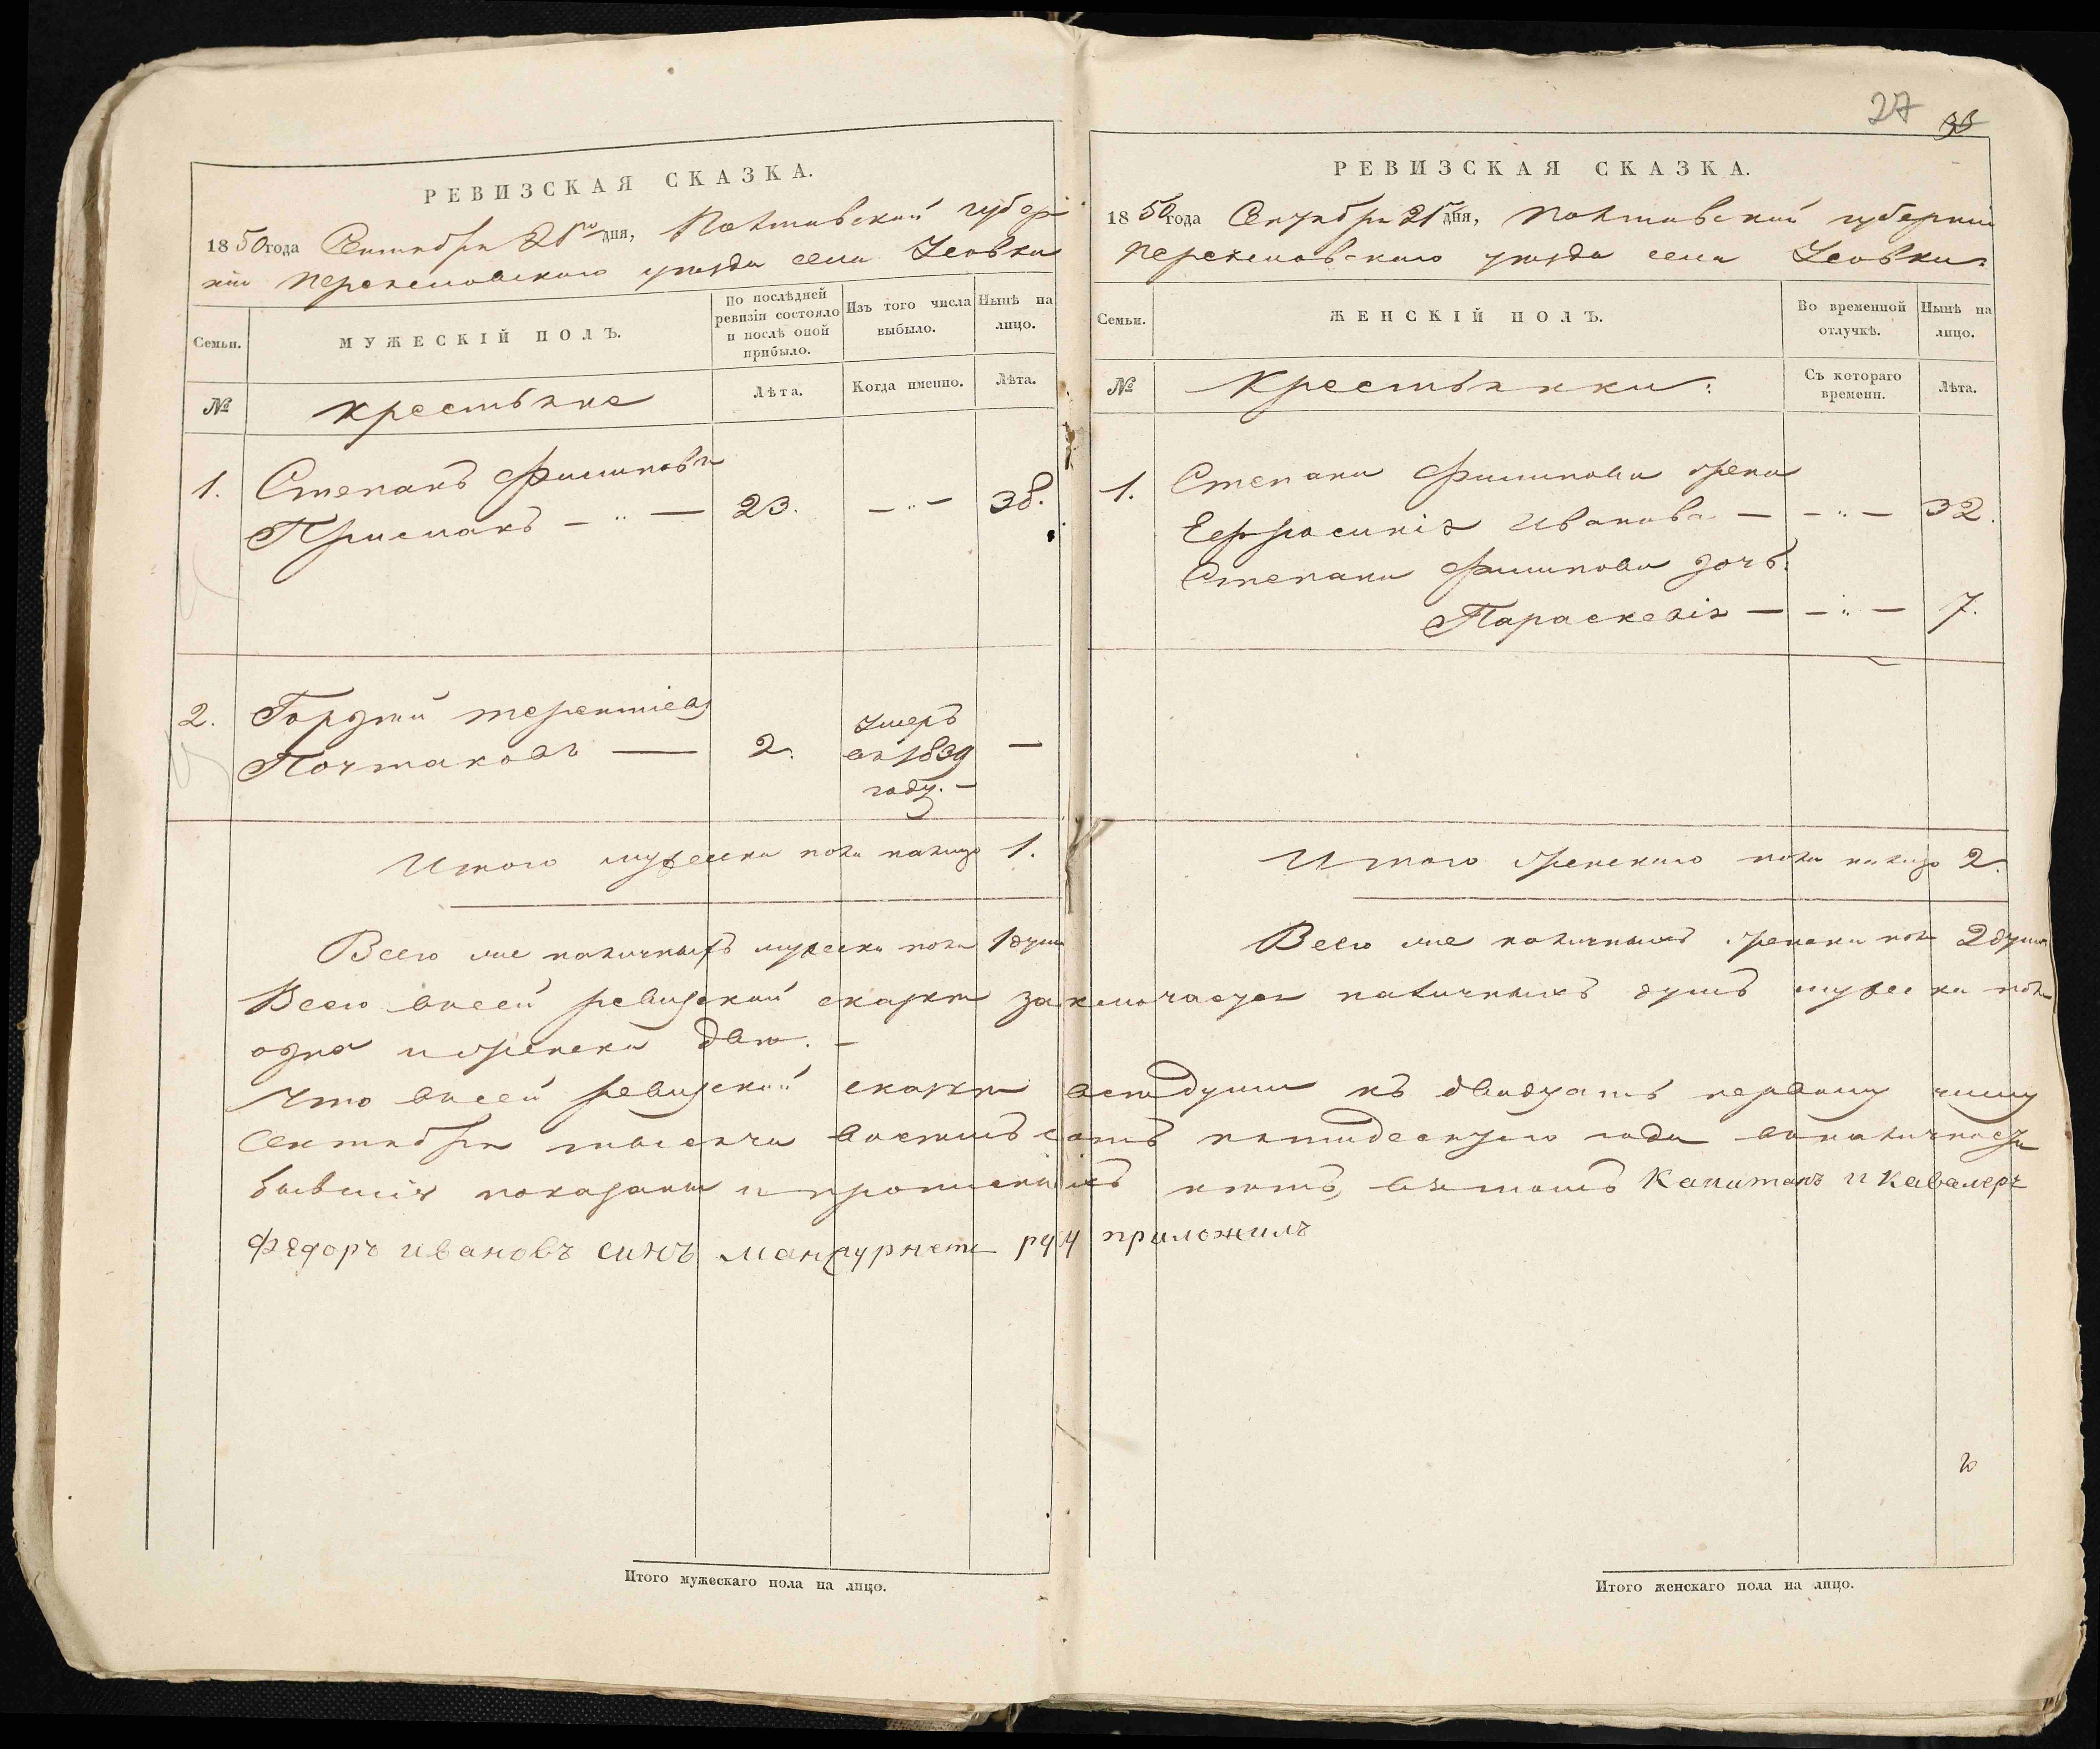 27 33
РЕВИЗСКАЯ СКАЗКА.
1850 года Сентября 21го дня, Полтавской губер
ніи Переяславского уезда села Усовки
Семьи.
МУЖЕСКІЙ ПОЛЪ.
По послѣдней ревизіи состояло и послѣ оной прибыло.
Изъ того числа выбыло.
Нынѣ на лицо.
№
крестьяне
Лѣта.
Когда именно.
Лѣта.
1. Степанъ Филиповъ
Приймакъ — " — 23. — " — 38.
2. Гордѣй Терентіевъ
Почтаковъ — 2. Умеръ —
въ 1839
году. —
Итого мужеска пола налицо 1.
Всего же наличныхъ мужеска пола 1 душа
РЕВИЗСКАЯ СКАЗКА.
1850 года Сентября 21го дня, Полтавской губерніи
Переяславского уезда села Усовки
Семьи.
ЖЕНСКІЙ ПОЛЪ.
Во временной отлучкѣ.
Нынѣ на лицо.
№
Крестьянки:
Съ котораго времени.
Лѣта.
1. Степана Филипова жена
Ефросинія Иванова — — " — 32.
Степана Филипова дочь:
Параскевія — — " — 7.
Итого женского пола налицо 2.
Всего же наличныхъ женска пола 2 души
Всего въсей ревизской сказке заключается наличныхъ душъ мужеска пола
одна и женска две. —
Что въсей ревизской сказке все души къ двадцать первому числу
Сентября тысеча восемьсотъ пятидесятого года вналичности
бывшія показаны и прописныхъ нетъ, вътомъ Капитанъ и Кавалеръ
Федоръ Ивановъ синъ руку приложилъ
Итого мужескаго пола на лицо.
Итого женскаго пола на лицо.